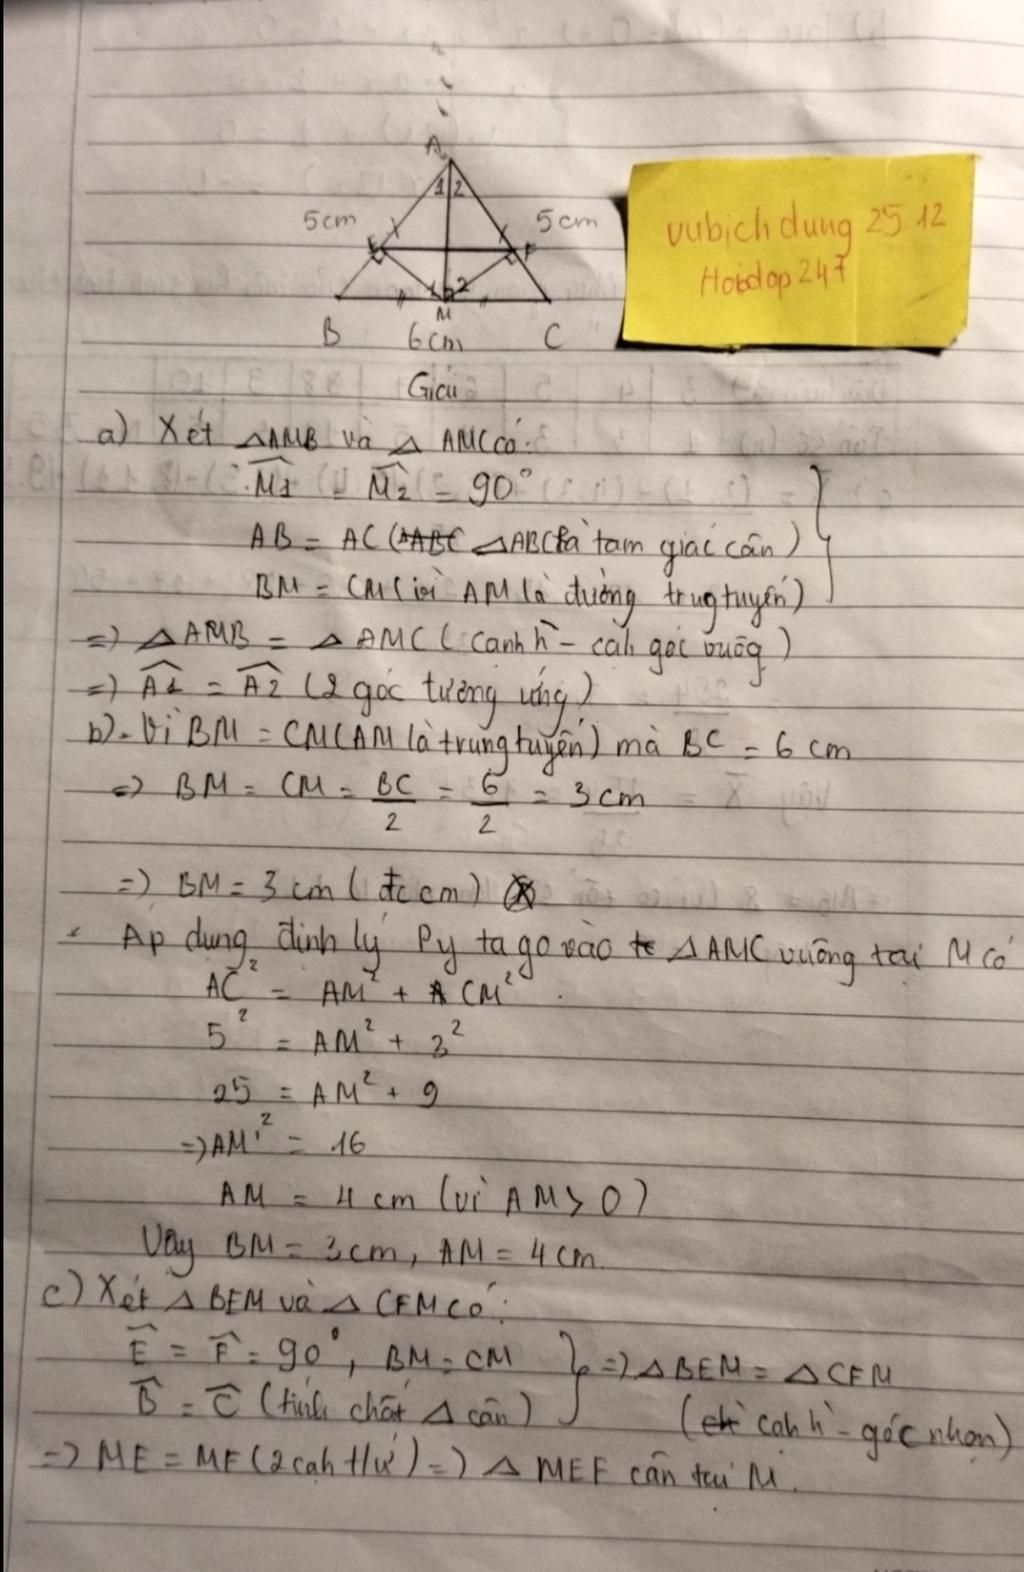 A
1 2
5cm
5cm
E
F
1 2
M
B
6cm
C
vubichdung 25 12
Hoidap 247
Giải
a) Xét △AMB và △ AMC có:
M1 = M2 = 90°
AB = AC (△ABC △ABC là tam giác cân)
BM = CM (vì AM là đường trug tuyến)
=> △AMB = △AMC (canh h - cah góc vuôg)
=> A1 = A2 (2 góc tương ứng)
b). Vì BM = CM (AM là trung tuyến) mà BC = 6 cm
=> BM = CM = BC/2 = 6/2 = 3cm
=> BM = 3 cm (đccm)
Ap dung định lý Py ta go vào △AMC vuông tại M có
AC² = AM² + CM².
5² = AM² + 3²
25 = AM² + 9
=> AM² = 16
AM = 4 cm (vì AM > 0)
Vậy BM = 3cm, AM = 4cm.
c) Xét △ BEM và △ CFM có:
E = F = 90°, BM = CM => △BEM = △CFM
B = C (tính chất △ cân) (cah h - góc nhọn)
=> ME = MF (2 cah t/ư) => △ MEF cân tại M.